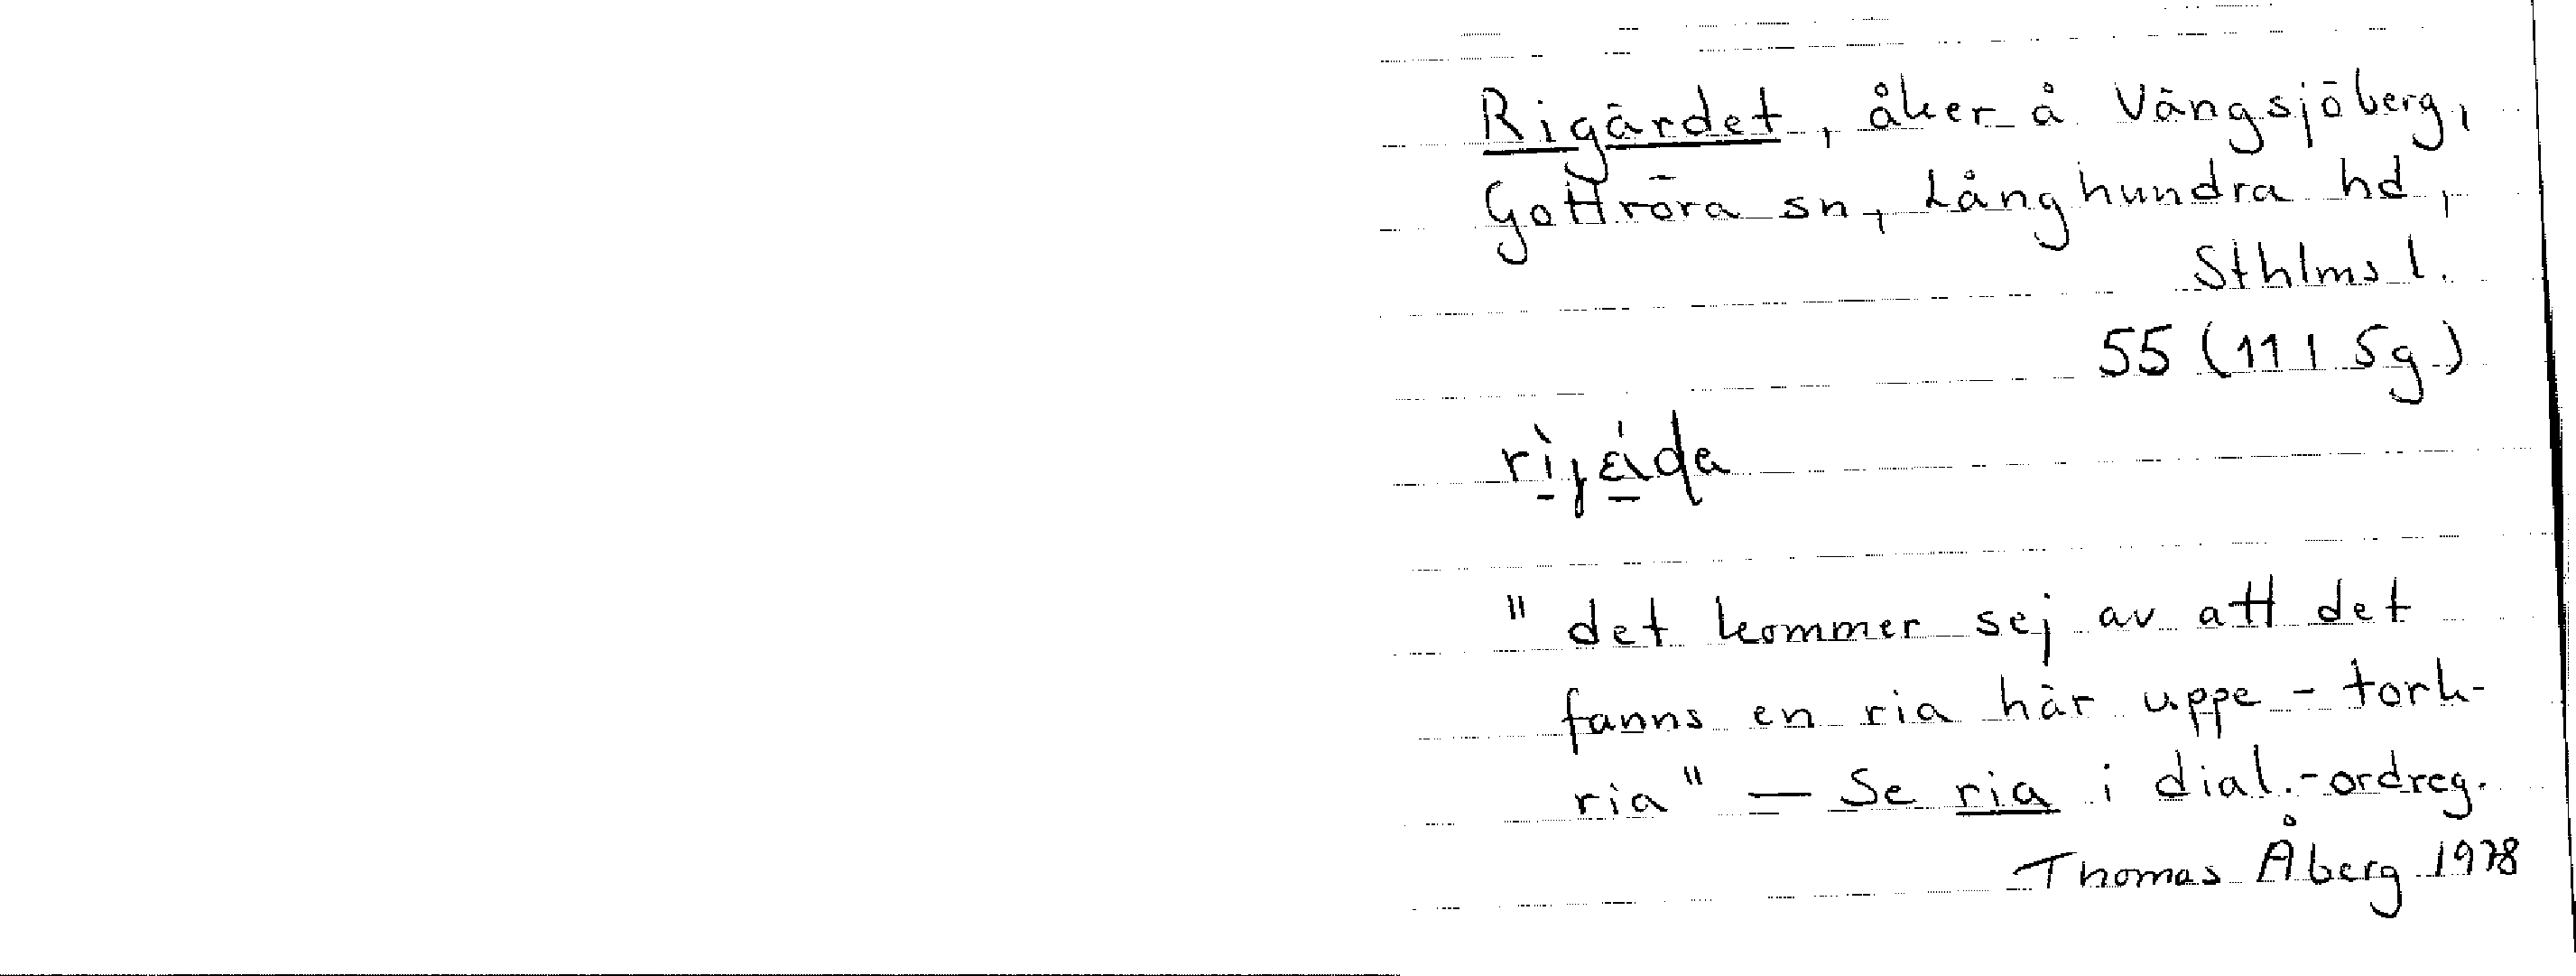 Rigärdet, åker å Vängsjöberg,
Gottröra sn, Långhundra hd,
Sthlms l.
55 (11 I 5g)
"det kommer sej av att det
fanns en ria här uppe - tork-
ria" — Se ria i dial.-ordreg.
Thomas Åberg 1978